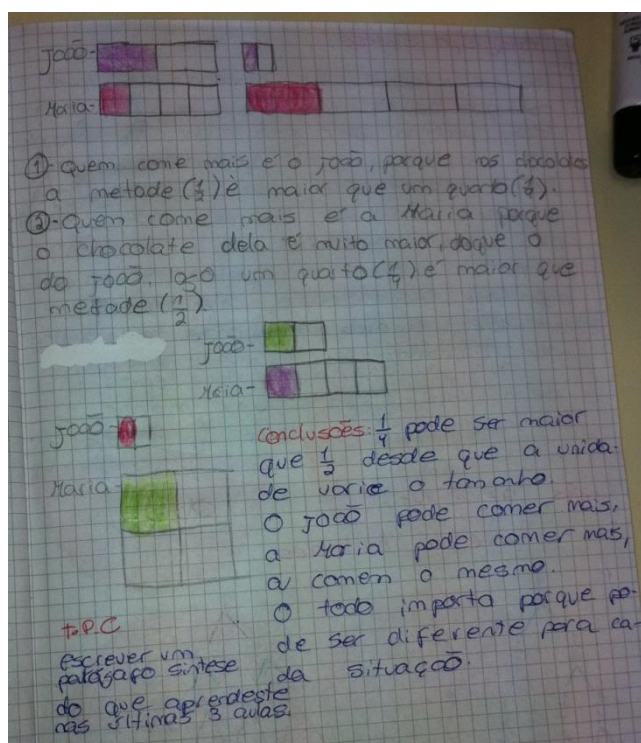 João-
Maria-
①- Quem come mais é o João, porque nos chocolates
a metade (1/2) é maior que um quarto (1/4).
②- Quem come mais é a Maria porque
o chocolate dela é muito maior, doque o
do João, logo um quarto (1/4) é maior que
metade (1/2)
João-
Maria-
João-
Maria-
Conclusões: 1/4 pode ser maior
que 1/2 desde que a unida-
de varie o tamanho.
O João pode comer mais,
a Maria pode comer mas,
a comen o mesmo.
O todo importa porque po-
de ser diferente para ca-
da situação.
t.P.C
escrever um
parágrafo síntese
do que aprendeste
nas últimas 3 aulas.